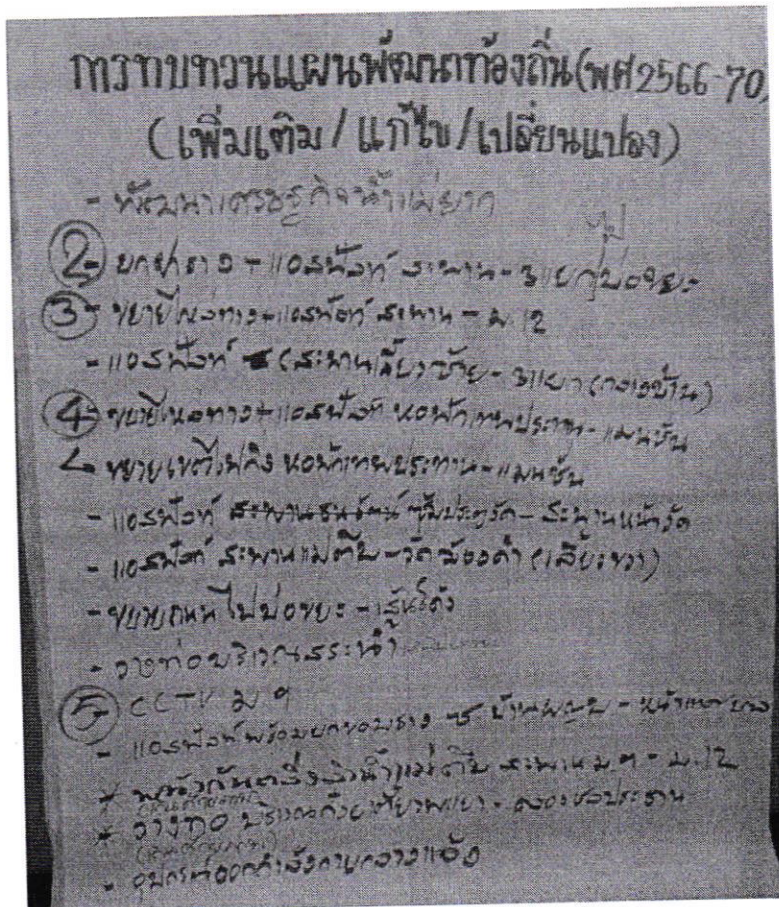 การทบทวนแผนพัฒนาท้องถิ่น(พศ2566-70)
(เพิ่มเติม/แก้ไข/เปลี่ยนแปลง)
- พัฒนาเศรษฐกิจน้ำแม่
② - ยก ราง + แอสฟัลท์ สะพาน - 3แยก ไปบ่อขยะ
③ - ขยายไหล่ทาง+แอสฟัลท์ สะพาน - ม.12
- แอสฟัลท์ (สะพานเลี้ยวซ้าย - 3แยก (กลางบ้าน)
④ - ขยายไหล่ทาง+แอสฟัลท์ หอพักเทพประทาน - แมนชั่น
ขยายเขตไฟกิ่ง หอพักเทพประทาน - แมนชั่น
- แอสฟัลท์ ซุ้มประตูวัด - สะพานหน้าวัด
- แอสฟัลท์ สะพานแม่ตีบ - วัด (เลี้ยวขวา)
- ขยายถนนไปบ่อขยะ -
- วางท่อบริเวณสระน้ำ
⑤ - CCTV ม 9
- แอสฟัลท์พร้อมยกขอบราง บ้าน - หน้า
* กันตลิ่งลำน้ำแม่ตีบ สะพาน ม.9 - ม.12
* วางท่อ บริเวณก๋วยเตี๋ยว - คลองชลประทาน
- อุปกรณ์ออกกำลังกายกลางแจ้ง